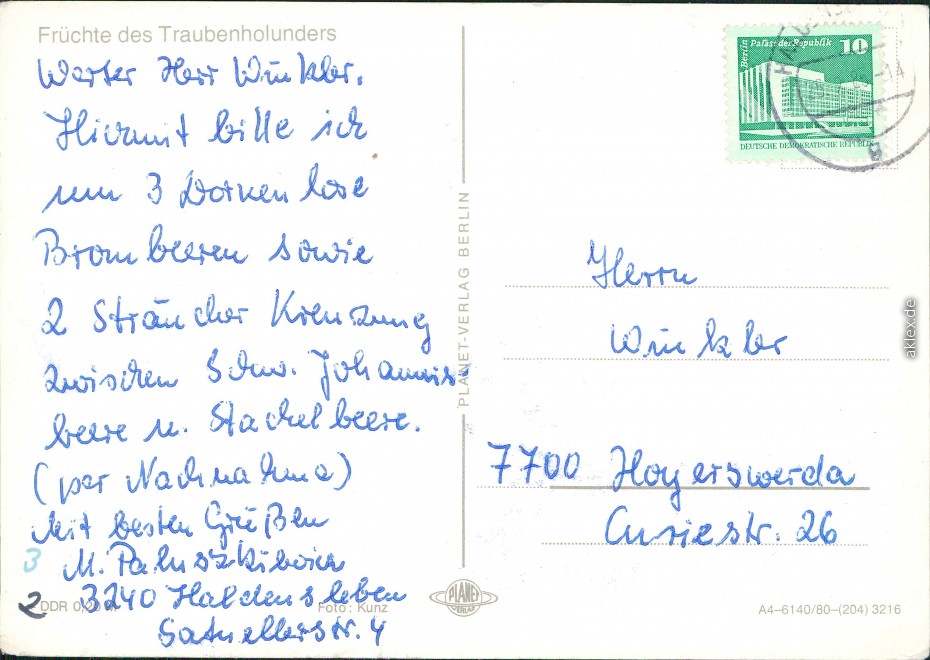 Früchte des Traubenholunders
Werter Herr Winkler.
Hiermit bitte ich
um 3 Dornenlose
Brombeeren sowie
2 Sträucher Kreuzung
zwischen Schw. Johannis-
beere u. Stachelbeere.
(per Nachnahme)
Mit besten Grüßen
3 M.
3240 Haldensleben
2 DDR 0,20 M
Foto: Kunz
Satuellerstr. 4
PLANET-VERLAG BERLIN
PLANET
VERLAG
Berlin Palast der Republik 10
DEUTSCHE DEMOKRATISCHE REPUBLIK
Herrn
Winkler
7700 Hoyerswerda
Curiestr. 26
A4–6140/80–(204) 3216
aklex.de